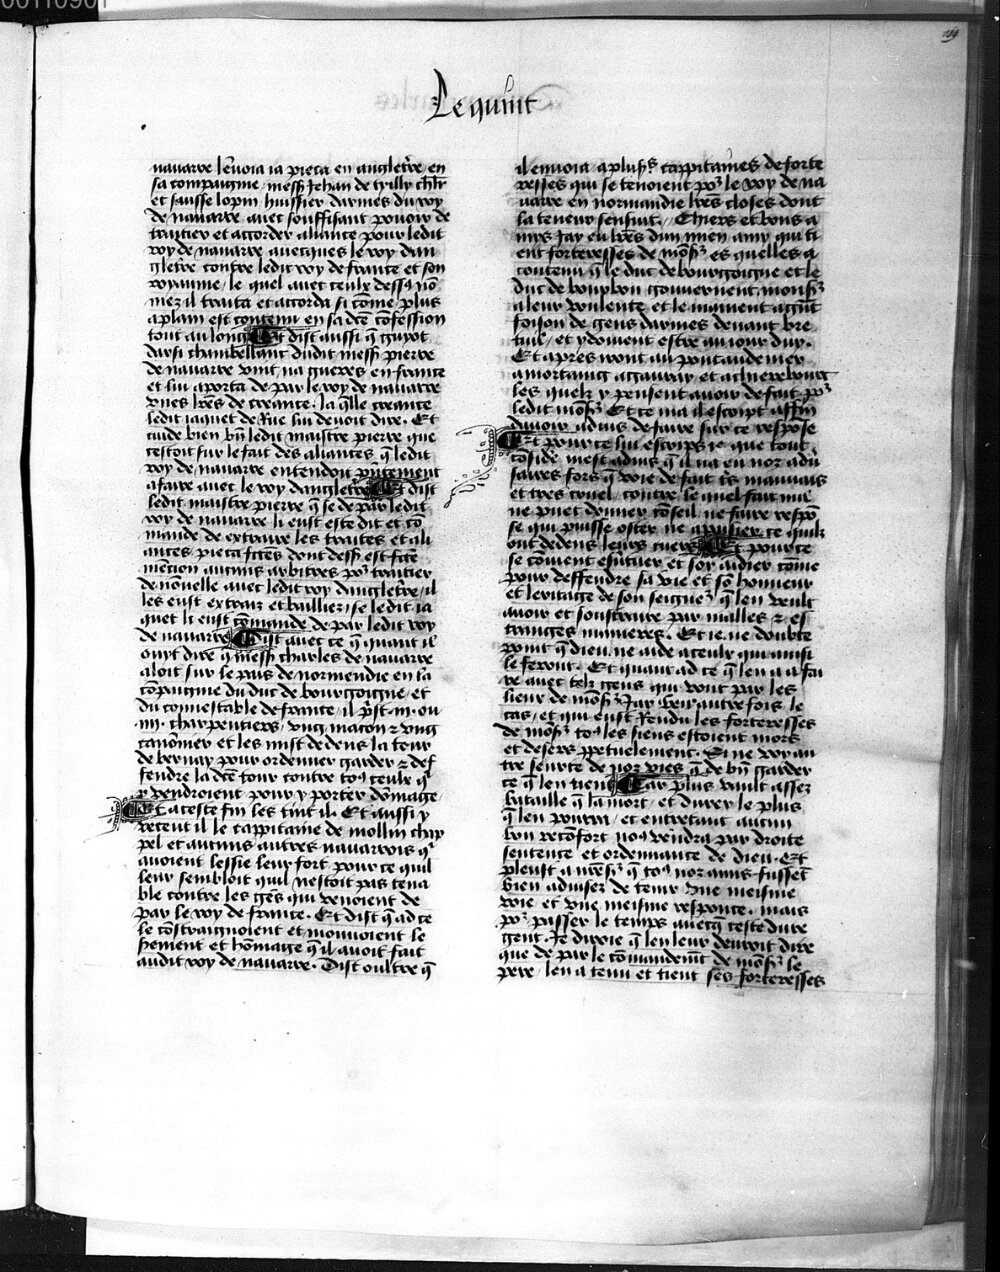 Le quint
189
nauarre lēuoia ia pieca en anglet̄re en
sa compaignie mess̄ Jehan de tyilly chl̄r
et sausse lopin huissier darmes du roy
de nauarre auec souffisant pouoir de
traitier et accorder aliance pour ledit
roy de nauarre auecques le roy dan
glet̄re contre ledit roy de france et son
royaume / le quel auec ceulx dess9 nō
mez il traita et accorda si come plus
a plain est contenu en sa dc̄e cōfession
tout au long Et dist aussi q̄ guyot
darsi chambellant dudit mess̄ pierre
de nauarre vint na gueres en france
et lui aporta de par le roy de nauarre
vnes lr̄es de creance. la q̄lle creance
ledit iaquet de Rue lui deuoit dire. Et
cuide bien bn̄ ledit maistre pierre que
cestoit sur le fait des aliances q̄ ledit
roy de nauarre entendoit p̄ntement
a faire auec le roy danglet̄re Et dist
ledit maistre pierre q̄ se de par ledit
roy de nauarre li eust este dit et cō
mande de extraire les traites et ali
ances pieca fc̄tes dont dess9 est fc̄te
mēcion aucuns arbitres po2 traitier
de nouuelle auec ledit roy danglet̄re / il
les eust extraiz et bailliez / se ledit ia
quet li eust cōmande de par ledit roy
de nauarre Dist auec ce q̄ quant il
ouyt dire q̄ mess̄ charles de nauarre
aloit sur le pais de normendie en la
cōpaignie du duc de bourgoigne et
du connestable de france / il p̄st .iij. ou
.iiij. charpentiers / vng macon & vng
canōnier et les mist dedens la tour
de bernay pour ordener garder & def
fendre la dc̄e tour contre to9 ceulx q̄
y vendroient pour y porter dōmage
Et a ceste fin les tint il. Et aussi y
recent il le cappitaine de mollin chap
pel et aucuns autres nauarrois q̄
auoient lessie leur fort pour ce quil
leur sembloit quil nestoit pas tena
ble contre les gēs qui venoient de
par le roy de france. Et dist q̄ ad ce
le cōstraignoient et mouuoient le
sement et hōmage q̄ il auoit fait
audit roy de nauarre. Dist oultre q̄
il enuoia a plus̄s cappitaines de forte
resses qui se tenoient po2 le roy de na
uarre en normandie lr̄es closes dont
la teneur sensuit / Chiers et bons a
mys Jay eu lr̄es dun mien amy qui ti
ent forteresses de mōs2 es quelles a
contenu q̄ le duc de bourgoigne et le
duc de bourbon gouuernent mons2
a leur voulente et le mainent a grāt
foison de gens darmes deuant bre
tuil / et y douient estre au iour duy.
Et apres vont au pont audemer
a mortaing a gauray et a chierebourt
les quelz y pensent auoir de fait po2
ledit mōs2 Et ce ma il escript affin
dauoir aduis de faire sur ce respōse
Et pour ce lui escrips ie que tout
cōside mest aduis q̄ il na en noz adu̇
saires fors q̄ voie de fait t̄s mauuais
et tres cruel / contre le quel fait nul
ne puet donner cōseil ne faire respō
se qui puisse oster ne apaisier ce quilz
ont dedens leurs cuers Et pour ce
se couient esuituer et soy aidier cōme
pour deffendre sa vie et sō honneur
et leritage de son seigne2 q̄ len veult
auoir et soustraire par malles & es
tranges manieres. Et ie ne doubte
point q̄ dieu ne aide a ceulx qui ainsi
le feront. Et quant ad ce q̄ len a a fai
re auec telz gens qui vont par les
lieux de mōs2 Jay veu autre fois le
cas / et qui eust Rendu les forteresses
de mōs2 to9 les siens estoient mors
et desers p̄petuelement. Si ne voy au
tre seurte de noz vies q̄ de bn̄ garder
ce q̄ len tient Car plus vault assez
bataille q̄ la mort / et durer le plus
q̄ len pourra / et entretant aucun
bon reconfort no9 vendra par droite
sentence et ordenance de dieu. Et
pleust a nr̄es2 q̄ to9 noz amis fussēt
bien aduisez de tenir vne meisme
voie et vne meisme response. mais
po2 passer le temps auecq̄ ceste dure
gent. Je diroie q̄ len leur deuroit dire
que de par le cōmandemēt de mōs2 le
pere / len a tenu et tient ses forteresses